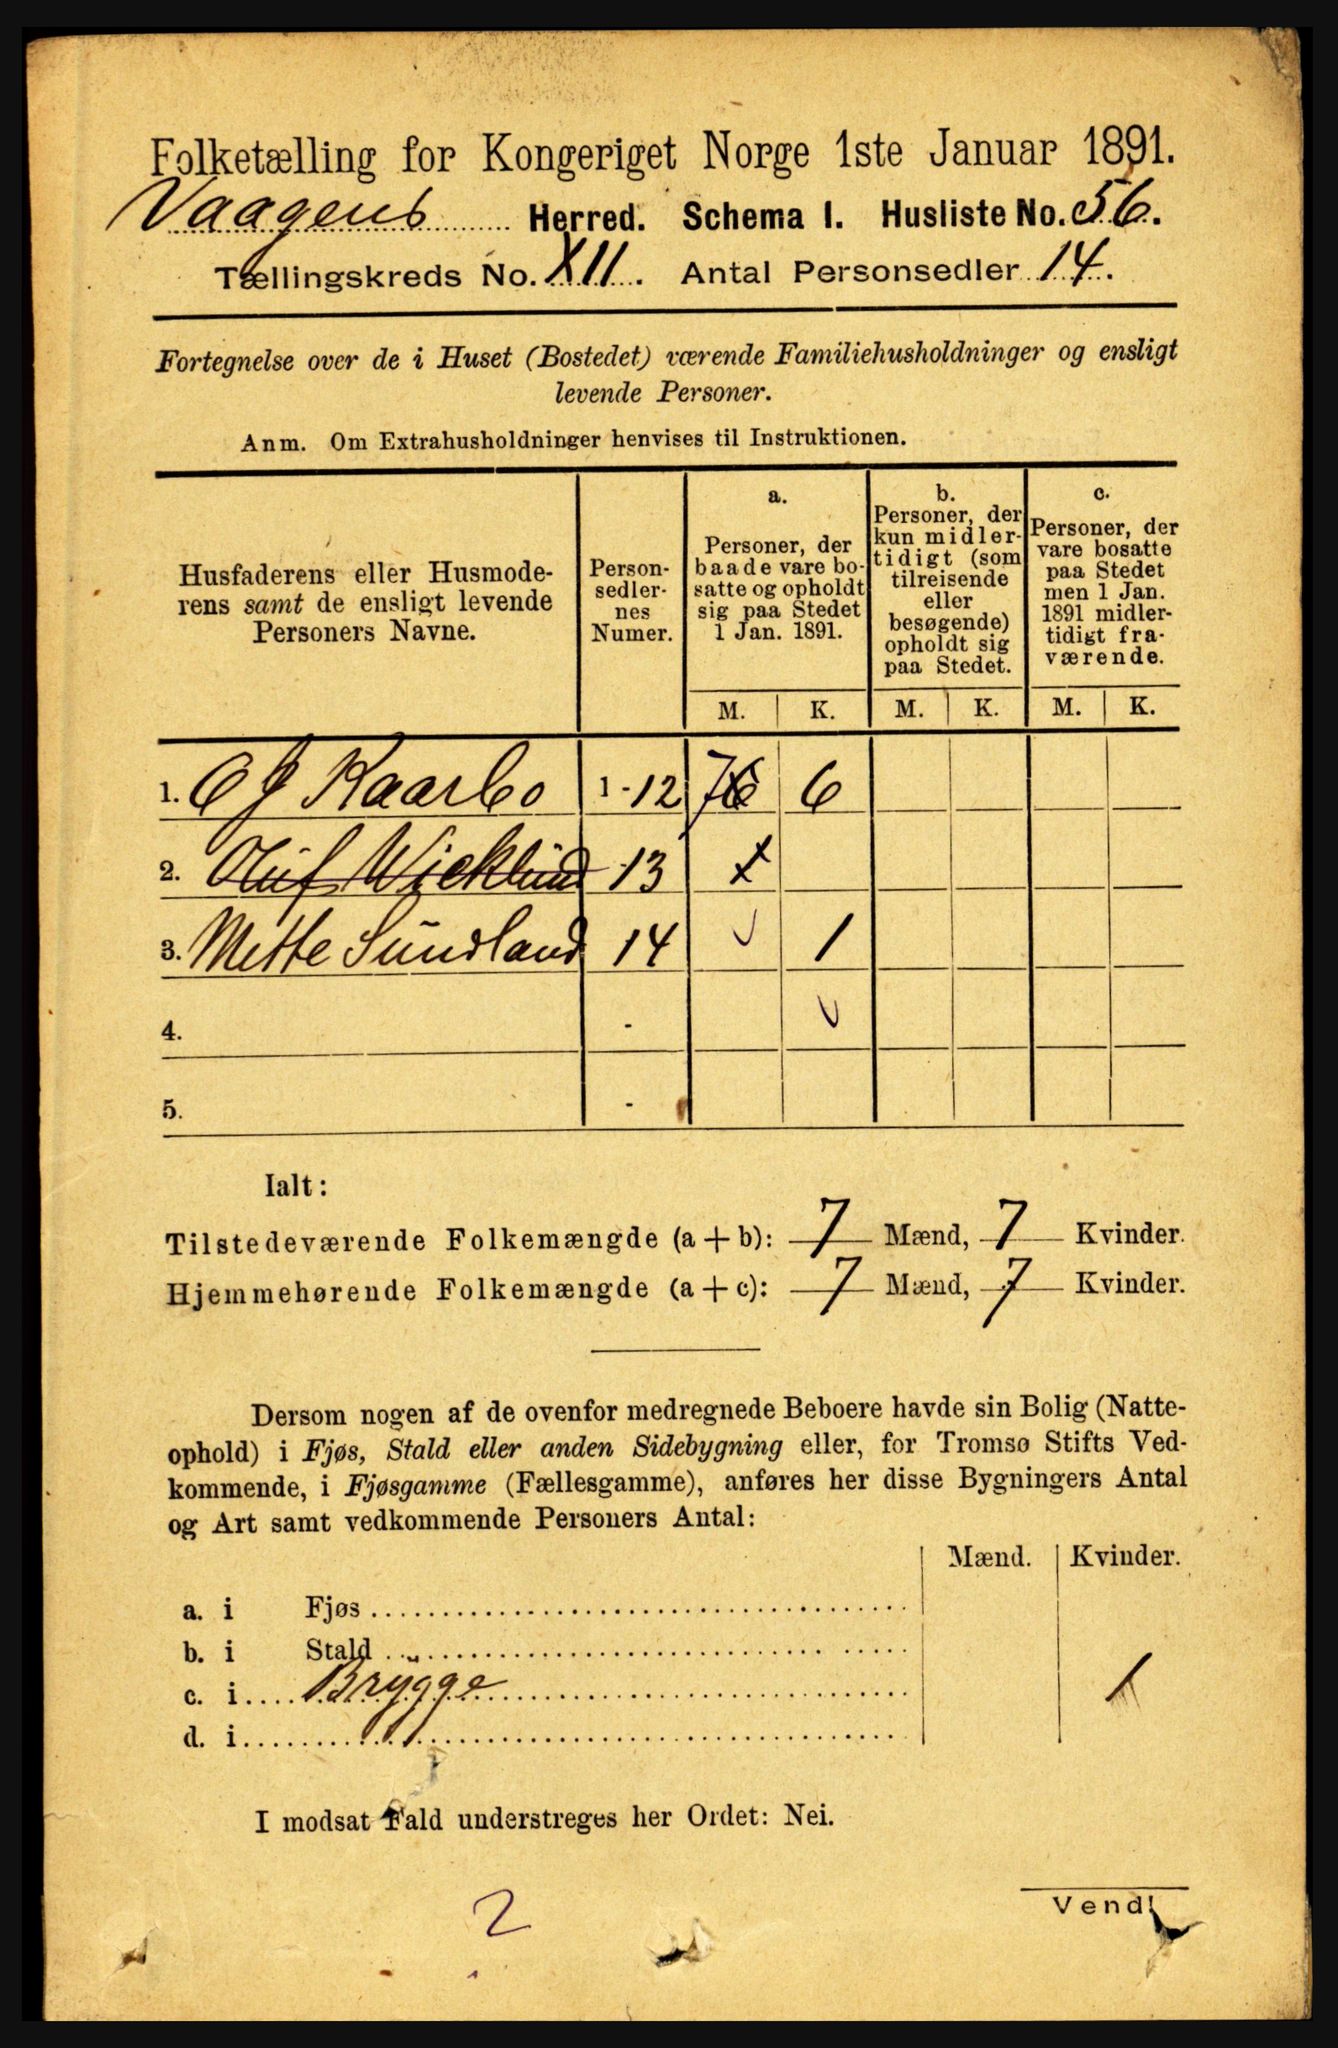 Folketælling for Kongeriget Norge 1ste Januar 1891.
Vaagens Herred. Schema 1. Husliste No. 56.
Tællingskreds No. XII. Antal Personsedler 14.
Fortegnelse over de i Huset (Bostedet) værende Familiehusholdninger og ensligt
levende Personer.
Anm. Om Extrahusholdninger henvises til Instruktionen.
Husfaderens eller Husmode-
rens samt de ensligt levende
Personers Navne.
Person-
sedler-
nes
Numer.
a.
Personer, der
baade vare bo-
satte og opholdt
sig paa Stedet
1 Jan. 1891.
b.
Personer, der
kun midler-
tidigt (som
tilreisende
eller
besøgende)
opholdt sig
paa Stedet.
c.
Personer, der
vare bosatte
paa Stedet
men 1 Jan.
1891 midler-
tidigt fra-
værende.
M. K. M. K. M. K.
1. O J Kaarbo 1-12 7 6
2. Oluf Wicklund 13
3. Mette Sundland 14 1
4. -
5. -
Ialt:
Tilstedeværende Folkemængde (a + b): 7 Mænd, 7 Kvinder.
Hjemmehørende Folkemængde (a + c): 7 Mænd, 7 Kvinder.
Dersom nogen af de ovenfor medregnede Beboere havde sin Bolig (Natte-
ophold) i Fjøs, Stald eller anden Sidebygning eller, for Tromsø Stifts Ved-
kommende, i Fjøsgamme (Fællesgamme), anføres her disse Bygningers Antal
og Art samt vedkommende Personers Antal:
Mænd. Kvinder.
a. i Fjøs
b. i Stald
c. i Brygge 1
d. i
I modsat Fald understreges her Ordet: Nei.
2
Vend!